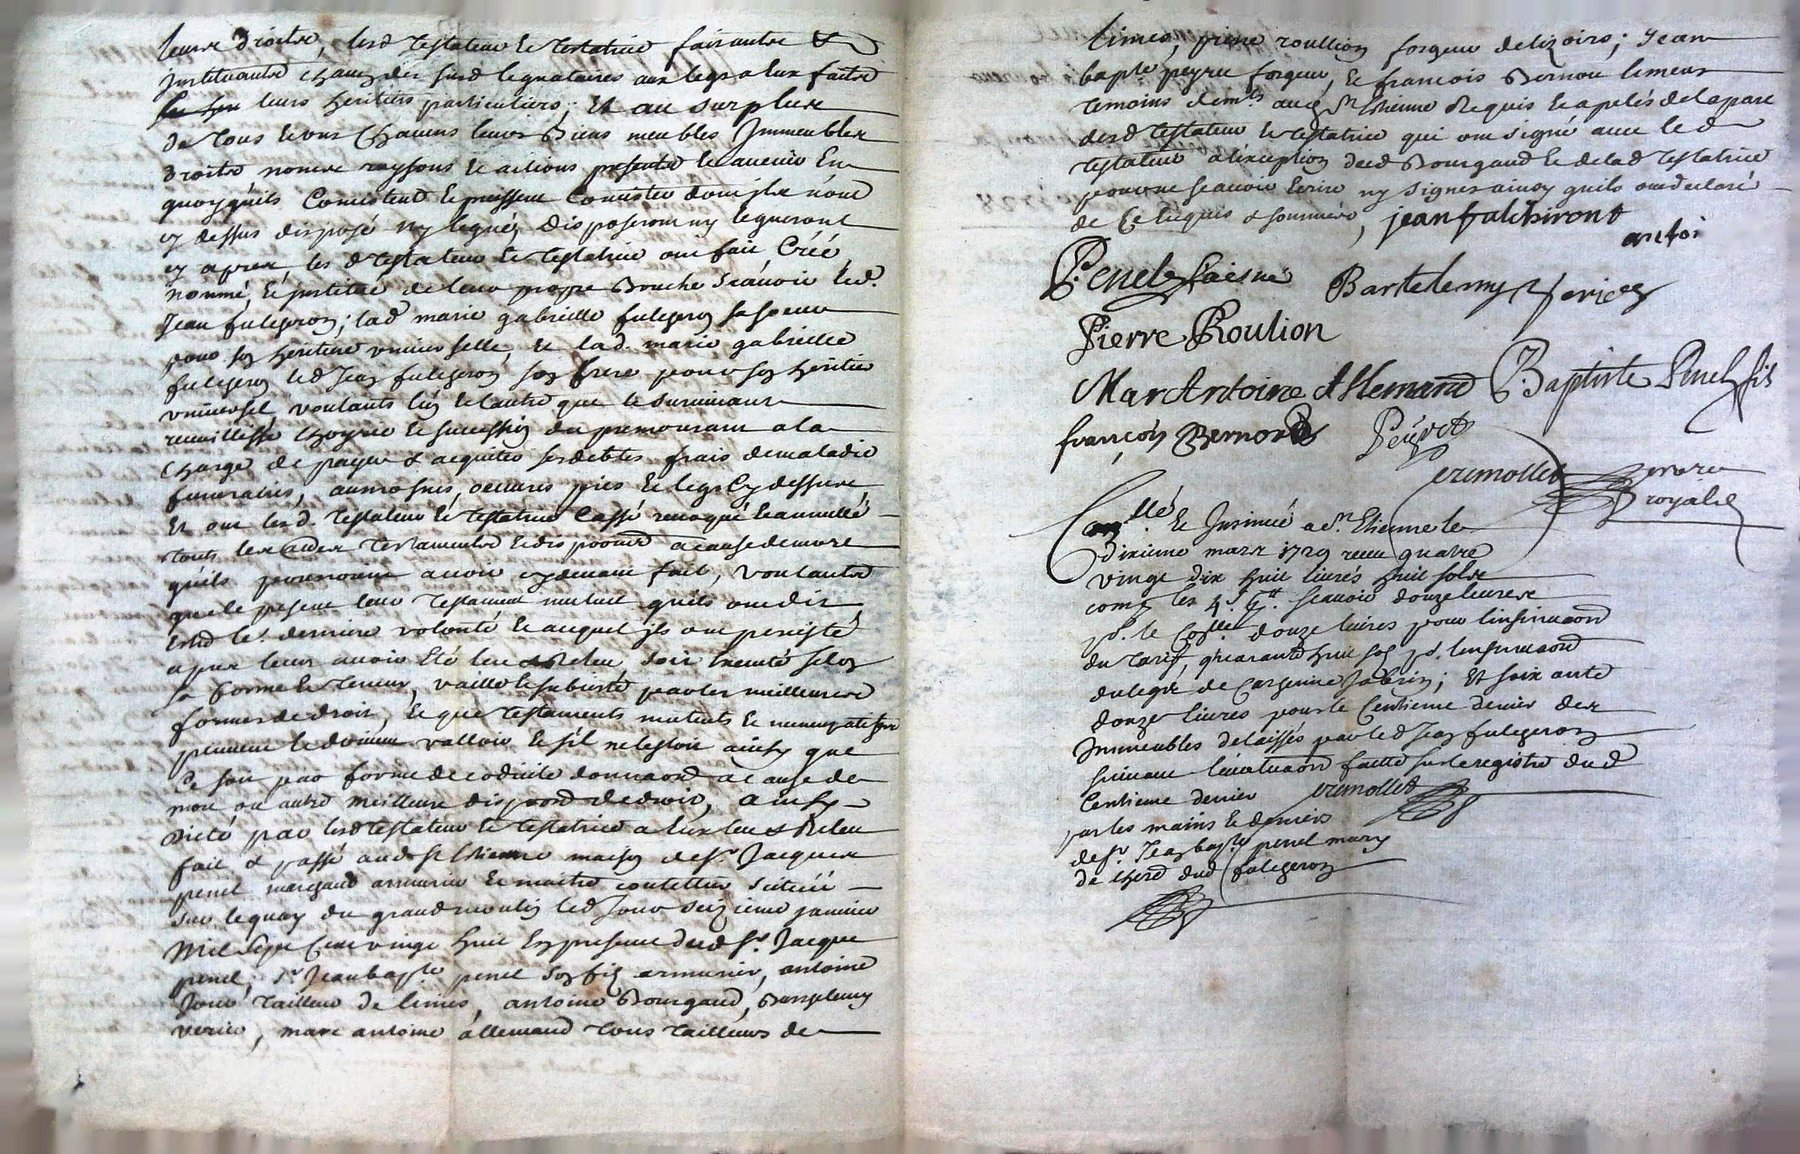 leurs droits, lesd testateur et testatrice faisants &
instituants chacun des susd legataires aux legs a eux faits
leurs heritiers particuliers; Et au surplus
de tous et uns chacuns leurs Biens meubles Immeubles
droits noms raysons et actions presents et avenir En
quoy quils Consistent et puissent Consister dont ils n'ont
cy dessus disposé ny legués disposeront ny legueront
cy apres, les d testateur et testatrice ont fait, Créé,
nommé, et institué de leur propre Bouche scavoir led.
Jean fulcheron; lad marie gabrielle fulcheron sa soeur
pour son heritiere universelle, et lad. marie gabrielle
fulcheron led Jean fulcheron son frere pour son heritier
universel, voulants lun et lautre que le survivant
recueillisse hoyrie et succession du premourant a la
charge de payer & aquiter ses debtes frais de maladie
funerailles, aumosnes, oeuvres pies et legs Cy dessus
Et ont lesd. testateur et testatrice Cassé revoqué et annullé
tous les autres testaments et dispoons a cause de mort
quils pourroient avoir cy devant fait, voulants
que le present leur testament mutuel quils ont dit
Estre le. derniere volonté et auquel ils ont persisté
apres leur avoir Eté leu & Releu soit Executé selon
sa forme et teneur, vaille et subsiste par les meilleures
formes de droit, et que testaments mutuels et nuncupatifs
peuvent et doivent valloir et s'il ne lestoit ainsy que
Ce soit par forme de codicile donnaon a cause de
mort ou autre meilleure dispoon de droit, ainsy
dicté par lesd testateur et testatrice a Eux leu & Releu
fait & passé aud St Etienne maison de sr. Jacques
penel marchand armurier et maitre coutellier scituée
sur le quay du grand moulin led Jour seizieme janvier
Mil sept Cent vingt huit En presence dud sr. Jacque
penel, sr Jean bapte penel son fils armurier, antoine
Jour tailleur de limes, antoine Bourgaud, Barthelemy
verier, marc antoine allemand tous tailleurs de
limes, pierre roullion forgeur de lizoirs; Jean
bapte peyret forgeur, et francois Bernou limeur
temoins demts aud St Etienne Requis et apelés de la part
desd testateur et testatrice qui ont signé avec led
testateur a l'exception dud Bourgaud et de lad testatrice
pour ne scavoir Ecrire ny signer ainsy quils ont declaré
de Ce Enquis & sommés, jean fulchiront
antoi
Penel Laisné Bartelemy Verier
Pierre Roulion
Mar Antoine Allemand J Baptiste Penel fils
françois Bernord Peyret
cremollet nore
royal
Conllé Et Insinué a St. Etienne le
dixieme mars 1729 receu quatre
vingt dix huit livres huit sols
comp les 4s. pr tt. scavoir douze livres
pr. le Conlle, douze livres pour linsinuaon
du tarif, quarante huit sols pr. linsinuaon
du legs de ; Et soixante
douze livres pour le Centieme denier des
Immeubles delaissés par led Jean fulcheron
suivant l'evaluaon faitte sur le registre dud
Centieme denier cremollet
par les mains et deniers
de sr. Jean bapte penel mary
de lherre dud fulcheron